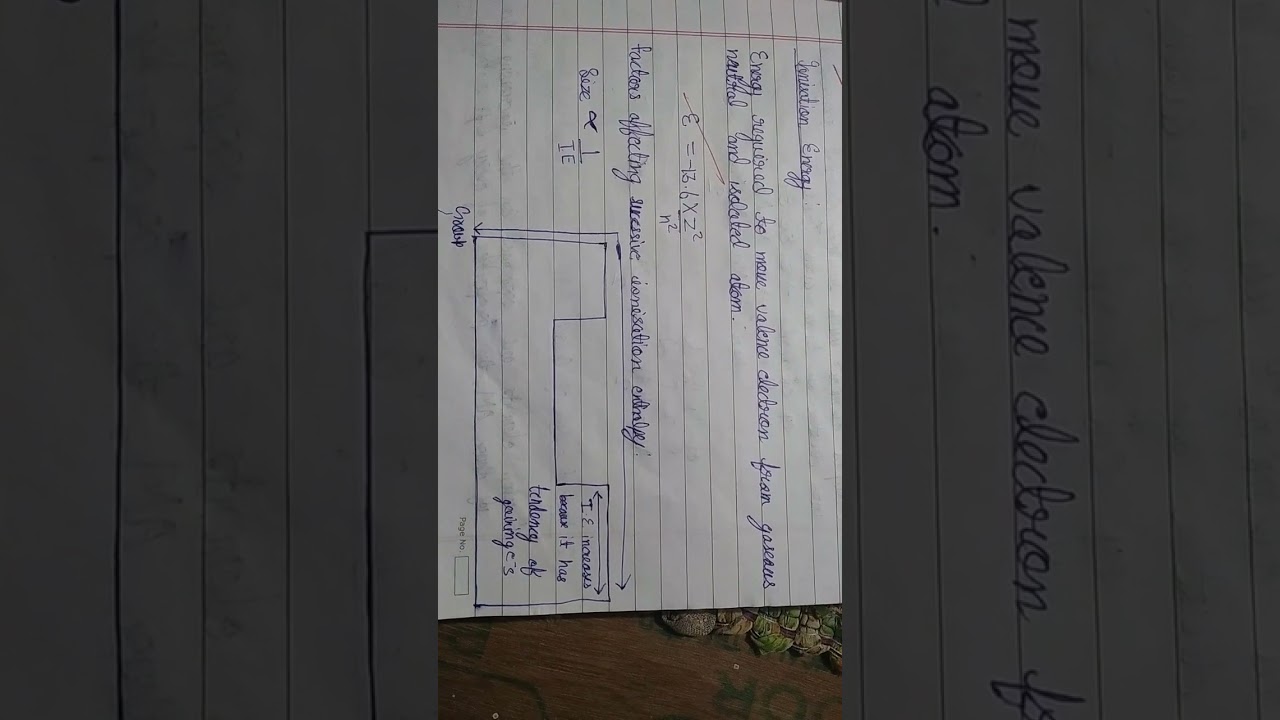 Ionisation Energy:
Energy required to move valence electron from gaseous
neutral and isolated atom.
E = -13.6 x Z²
n²
factors affecting sucessive ionisation enthalpy:
Size ∝ 1
IE
I.E increases
because it has
tendency of
gaining e⁻s
Group
Page No.
move valence electron
atom.